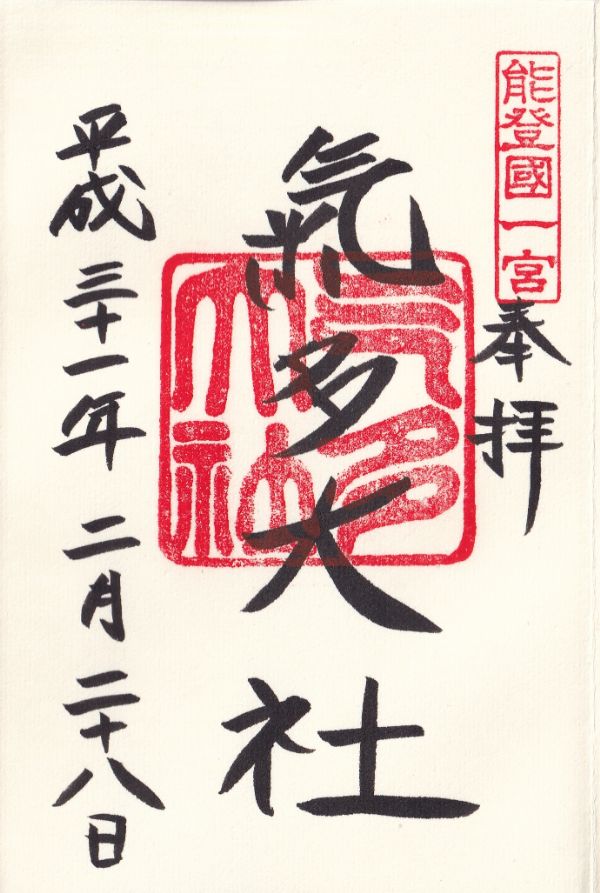 能登國一宮
奉拝
氣多大社
氣多大社
平成三十一年二月二十八日